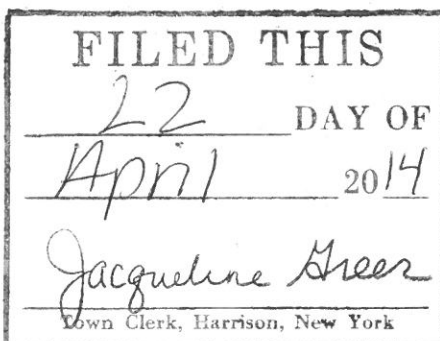 FILED THIS
22 DAY OF
April 2014
Jacqueline Greer
Town Clerk, Harrison, New York